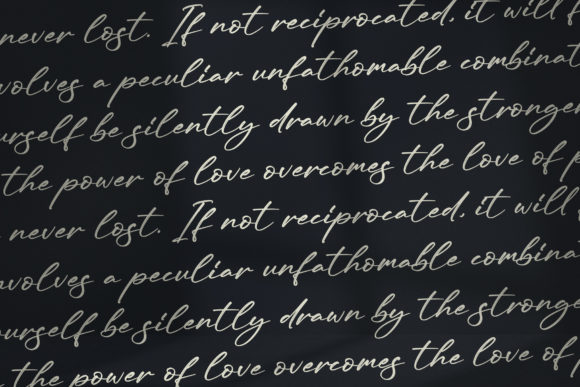 never lost. If not reciprocated, it will
volves a peculiar unfathomable combinat
urself be silently drawn by the stronger
the power of love overcomes the love of p
never lost. If not reciprocated, it will
nvolves a peculiar unfathomable combina
ourself be silently drawn by the stronge
the power of love overcomes the love of p